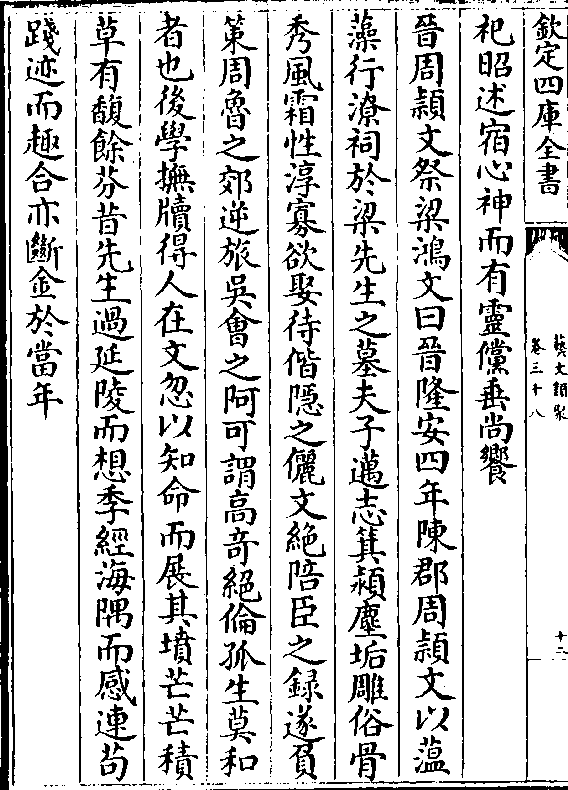 欽定四庫全書
藝文類聚
卷三十八
十二
祀昭述宿心神而有靈儻垂尚饗
晉周頴文祭梁鴻文曰晉隆安四年陳郡周頴文以藴
藻行潦祠於梁先生之墓夫子邁志箕潁塵垢雕俗骨
秀風霜性淳寡欲娶待偕隠之儷文絶陪臣之録遂負
策周魯之郊逆旅吳㑹之阿可謂髙竒絶倫孤生莫和
者也後學撫牘得人在文忽以知命而展其墳芒芒積
草有馥餘芬昔先生過延陵而想季經海隅而感連茍
踐迹而趣合亦斷金於當年